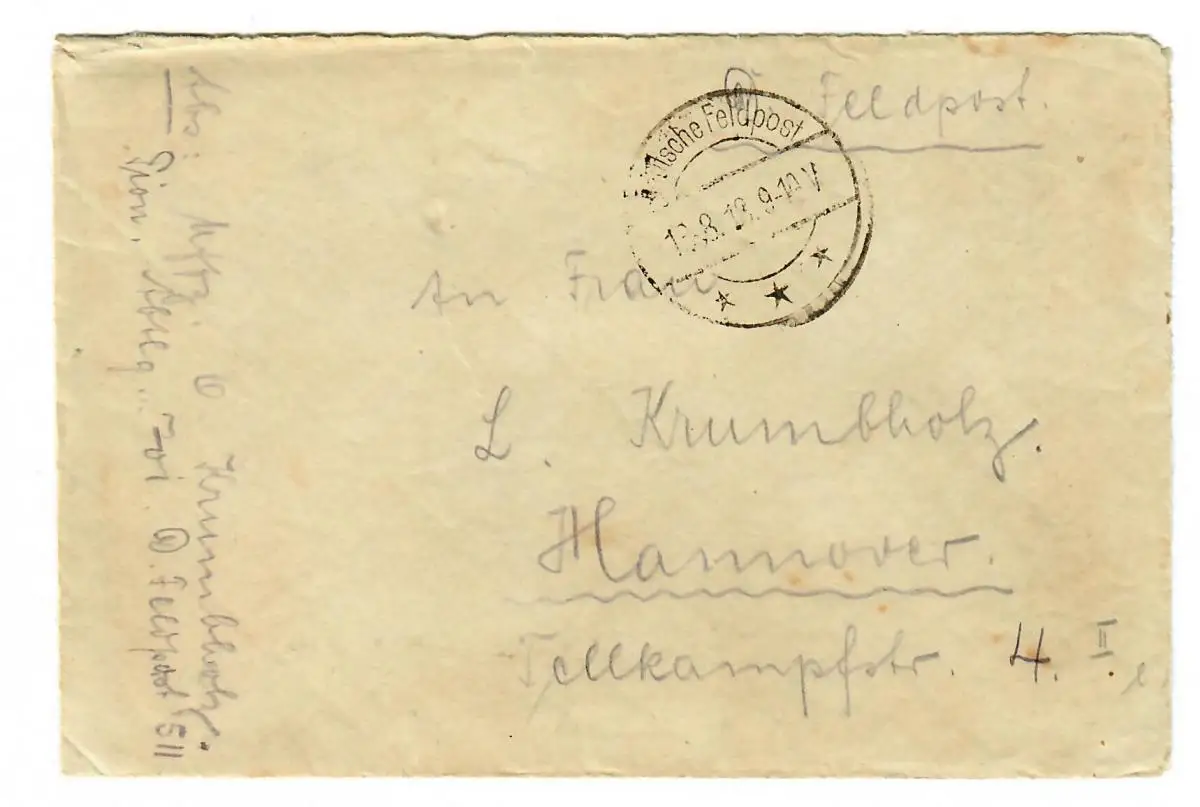 D. Feldpost.
Deutsche Feldpost
8.18. 9-10 V
An Frau
L. Krumbholz.
Hannover.
Tellkampfstr. 4. II
Abs: Uffz. O. Krumbholz.
Pion. D. Feldpost 511